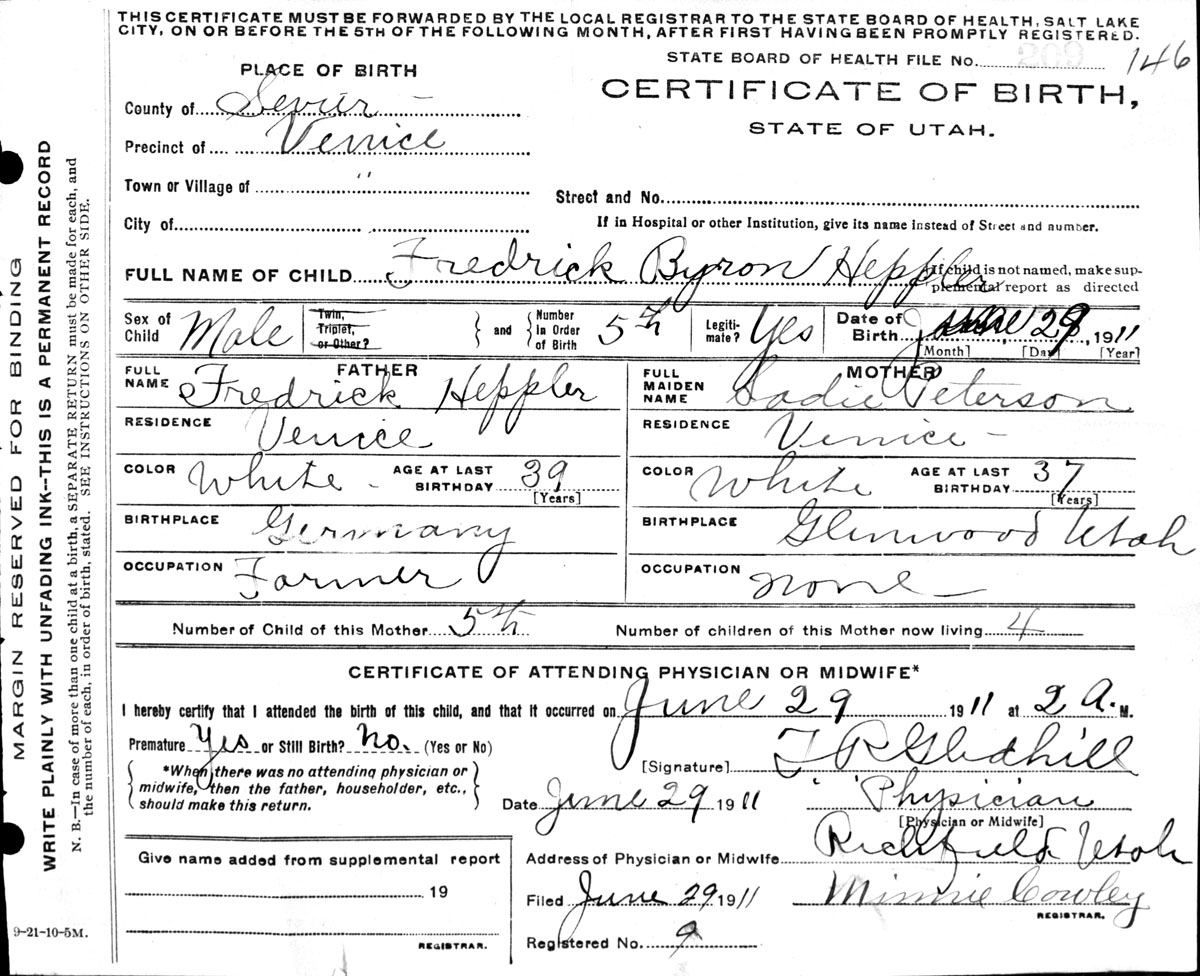 THIS CERTIFICATE MUST BE FORWARDED BY THE LOCAL REGISTRAR TO THE STATE BOARD OF HEALTH, SALT LAKE
CITY, ON OR BEFORE THE 5TH OF THE FOLLOWING MONTH, AFTER FIRST HAVING BEEN PROMPTLY REGISTERED.
STATE BOARD OF HEALTH FILE No. 209 146
PLACE OF BIRTH
CERTIFICATE OF BIRTH,
STATE OF UTAH.
County of Sevier
Precinct of Venice
Town or Village of "
Street and No.
City of
If in Hospital or other Institution, give its name instead of Street and number.
FULL NAME OF CHILD Fredrick Byron Heppler
If child is not named, make sup-
plemental report as directed
Sex of Child Male Twin, Triplet, or Other? } and { Number in Order of Birth 5th Legiti-mate? Yes Date of Birth June 29, 1911
[Month] [Day] [Year]
FATHER
FULL NAME Fredrick Heppler
RESIDENCE Venice
COLOR White - AGE AT LAST BIRTHDAY 39
[Years]
BIRTHPLACE Germany
OCCUPATION Farmer
MOTHER
FULL MAIDEN NAME Sadie Peterson
RESIDENCE Venice -
COLOR White AGE AT LAST BIRTHDAY 37
[Years]
BIRTHPLACE Glenwood Utah
OCCUPATION none
Number of Child of this Mother 5th Number of children of this Mother now living 4
CERTIFICATE OF ATTENDING PHYSICIAN OR MIDWIFE*
I hereby certify that I attended the birth of this child, and that it occurred on June 29 1911 at 2 A. M.
Premature Yes or Still Birth? No. (Yes or No)
[Signature] T R Gledhill
*When there was no attending physician or
midwife, then the father, householder, etc.,
should make this return.
Date June 29 1911 Physician
[Physician or Midwife]
Give name added from supplemental report
19
REGISTRAR.
Address of Physician or Midwife Richfield Utah
Filed June 29 1911 Minnie Cowley
REGISTRAR.
Registered No. 9
9-21-10-5M.
MARGIN RESERVED FOR BINDING
WRITE PLAINLY WITH UNFADING INK--THIS IS A PERMANENT RECORD
N. B.—In case of more than one child at a birth, a SEPARATE RETURN must be made for each, and
the number of each, in order of birth, stated. SEE INSTRUCTIONS ON OTHER SIDE.